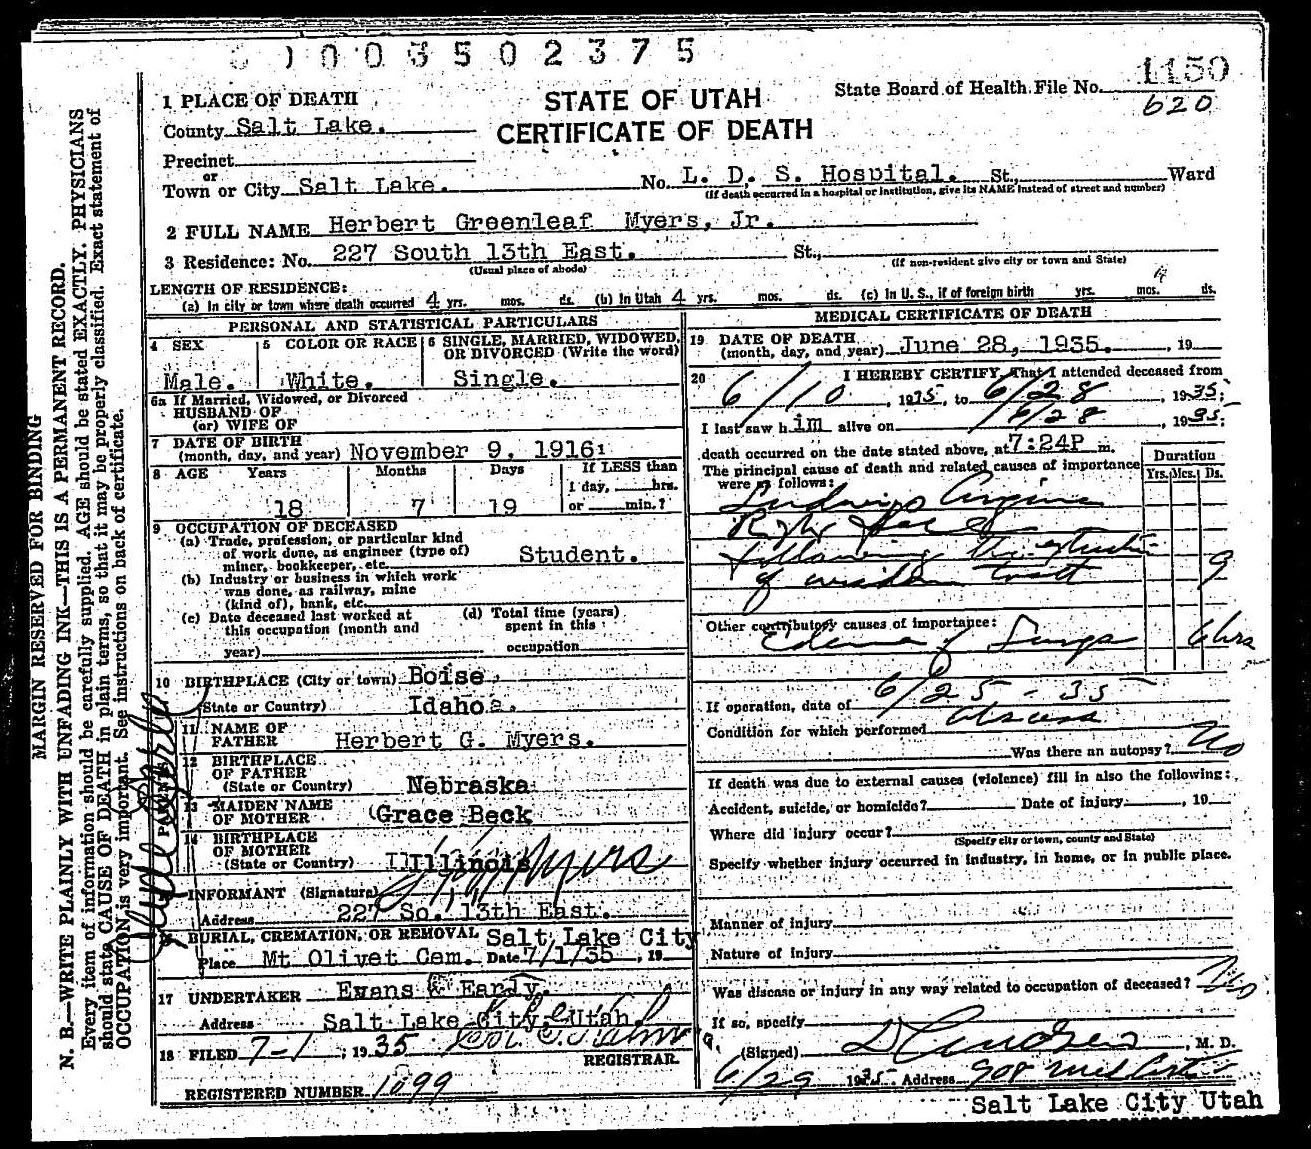 1003502375
1150
STATE OF UTAH
State Board of Health File No.
620
CERTIFICATE OF DEATH
1 PLACE OF DEATH
County Salt Lake.
Precinct
or
Town or City Salt Lake. No. L. D. S. Hospital. St., Ward
(If death occurred in a hospital or institution, give its NAME instead of street and number)
2 FULL NAME Herbert Greenleaf Myers, Jr.
3 Residence: No. 227 South 13th East. St.,
(Usual place of abode) (If non-resident give city or town and State)
LENGTH OF RESIDENCE:
(a) In city or town where death occurred 4 yrs. mos. ds. (b) In Utah 4 yrs. mos. ds. (c) In U. S., if of foreign birth yrs. mos. ds.
PERSONAL AND STATISTICAL PARTICULARS
4 SEX
Male.
5 COLOR OR RACE
White.
6 SINGLE, MARRIED, WIDOWED, OR DIVORCED (Write the word)
Single.
6a If Married, Widowed, or Divorced
HUSBAND OF
(or) WIFE OF
7 DATE OF BIRTH
(month, day, and year) November 9, 1916
8 AGE Years Months Days If LESS than
1 day, hrs.
18 7 19 or min.?
9 OCCUPATION OF DECEASED
(a) Trade, profession, or particular kind
of work done, as engineer (type of)
miner, bookkeeper, etc. Student.
(b) Industry or business in which work
was done, as railway, mine
(kind of), bank, etc.
(c) Date deceased last worked at
this occupation (month and
year)
(d) Total time (years)
spent in this
occupation
10 BIRTHPLACE (City or town) Boise,
(State or Country) Idaho.
11 NAME OF
FATHER Herbert G. Myers.
12 BIRTHPLACE
OF FATHER
(State or Country) Nebraska
13 MAIDEN NAME
OF MOTHER Grace Beck
14 BIRTHPLACE
OF MOTHER
(State or Country) Illinois
PARENTS
INFORMANT (Signature) Myers
Address 227 So. 13th East.
BURIAL, CREMATION, OR REMOVAL Salt Lake City
Place Mt Olivet Cem. Date 7/1/35, 19
17 UNDERTAKER Evans & Early.
Address Salt Lake City, Utah.
18 FILED 7-1, 1935
REGISTRAR.
REGISTERED NUMBER 1099
MEDICAL CERTIFICATE OF DEATH
19 DATE OF DEATH
(month, day, and year) June 28, 1935., 19
20 I HEREBY CERTIFY, That I attended deceased from
6/10, 1935, to 6/28, 1935;
I last saw him alive on 6/28, 1935;
death occurred on the date stated above, at 7:24P m.
The principal cause of death and related causes of importance
were as follows:
Duration
Yrs. Mos. Ds.
Ludwigs Angina
Right
following the extraction
of wisdom tooth 9
Other contributory causes of importance:
Edema of Lungs 6 hrs
If operation, date of 6/25-35
Condition for which performed abscess
Was there an autopsy? No
If death was due to external causes (violence) fill in also the following:
Accident, suicide, or homicide? Date of injury, 19
Where did injury occur?
(Specify city or town, county and State)
Specify whether injury occurred in industry, in home, or in public place.
Manner of injury
Nature of injury
Was disease or injury in any way related to occupation of deceased? No
If so, specify
(Signed) , M. D.
6/29 1935 Address 908
Salt Lake City Utah
MARGIN RESERVED FOR BINDING
N. B.—WRITE PLAINLY WITH UNFADING INK—THIS IS A PERMANENT RECORD.
Every item of information should be carefully supplied. AGE should be stated EXACTLY. PHYSICIANS
should state CAUSE OF DEATH in plain terms, so that it may be properly classified. Exact statement of
OCCUPATION is very important. See instructions on back of certificate.